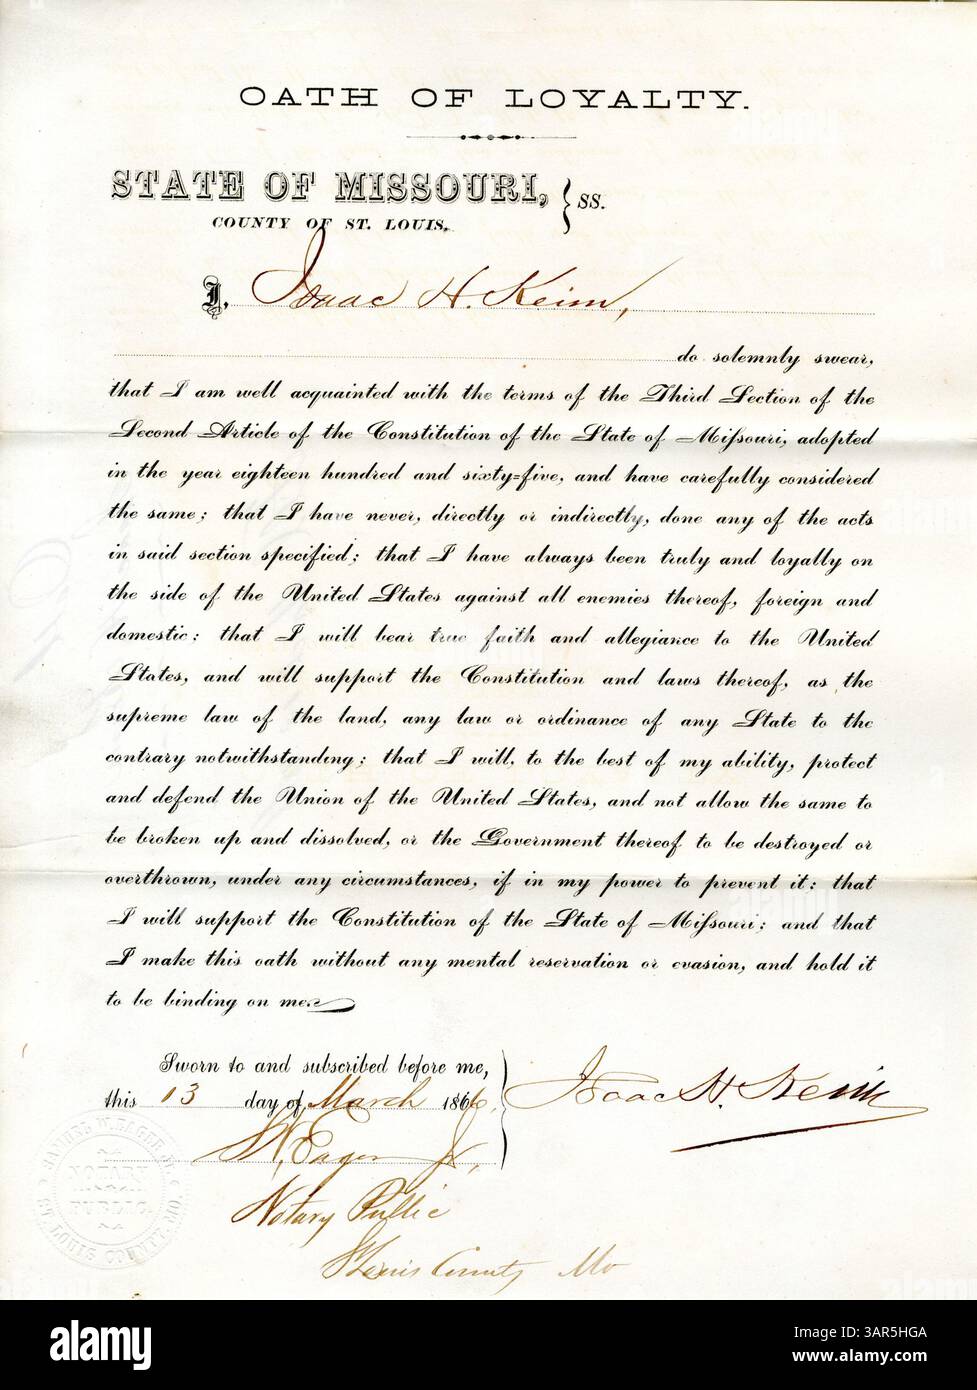 OATH OF LOYALTY.
STATE OF MISSOURI, } ss.
COUNTY OF ST. LOUIS,
I, Isaac H. Keim,
do solemnly swear,
that I am well acquainted with the terms of the Third Section of the
Second Article of the Constitution of the State of Missouri, adopted
in the year eighteen hundred and sixty-five, and have carefully considered
the same; that I have never, directly or indirectly, done any of the acts
in said section specified; that I have always been truly and loyally on
the side of the United States against all enemies thereof, foreign and
domestic; that I will bear true faith and allegiance to the United
States, and will support the Constitution and laws thereof, as the
supreme law of the land, any law or ordinance of any State to the
contrary notwithstanding; that I will, to the best of my ability, protect
and defend the Union of the United States, and not allow the same to
be broken up and dissolved, or the Government thereof to be destroyed or
overthrown, under any circumstances, if in my power to prevent it; that
I will support the Constitution of the State of Missouri; and that
I make this oath without any mental reservation or evasion, and hold it
to be binding on me.
Sworn to and subscribed before me,
this 13 day of March 1866.
Isaac H. Keim
S. W. Eager Jr.
Notary Public
St Louis County Mo
SAMUEL W. EAGER JR.
NOTARY
PUBLIC.
ST. LOUIS COUNTY, MO.
alamy
Image ID: 3AR5HGA
www.alamy.com